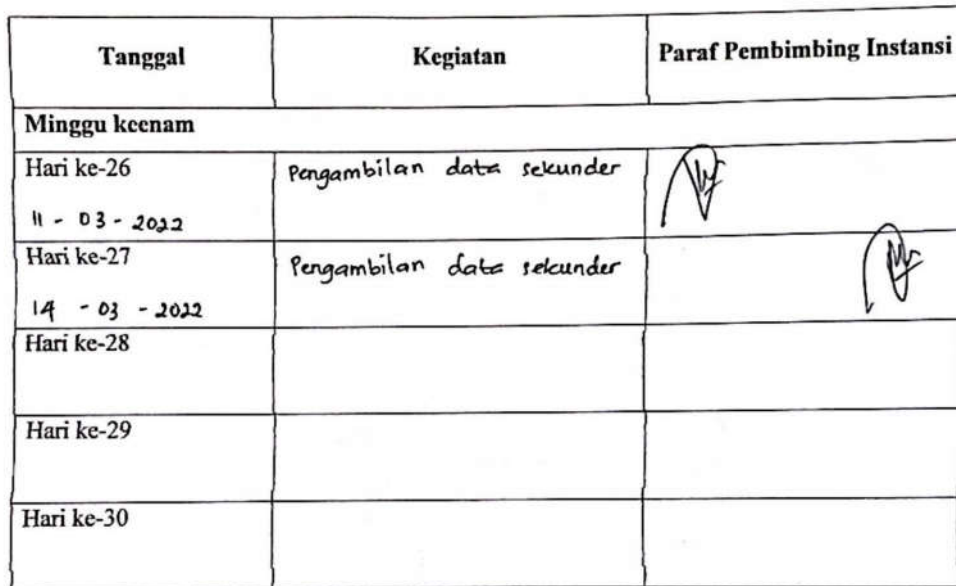 Tanggal Kegiatan Paraf Pembimbing Instansi
Minggu keenam
Hari ke-26 Pengambilan data sekunder
11 - 03 - 2022
Hari ke-27 Pengambilan data sekunder
14 - 03 - 2022
Hari ke-28
Hari ke-29
Hari ke-30